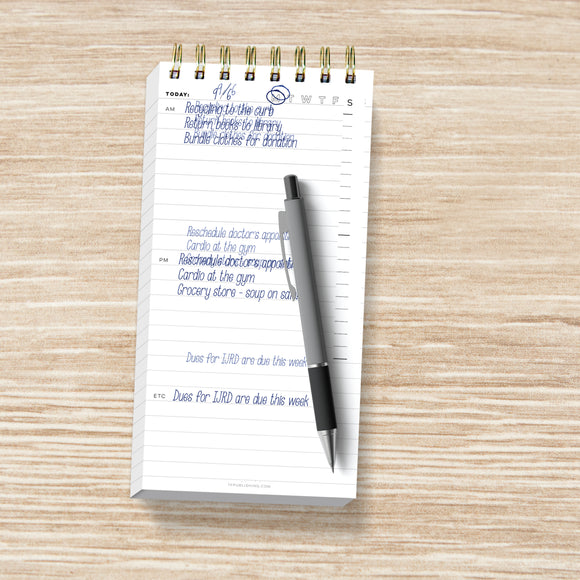 TODAY: T W T F S
AM Recycling to the curb
Return books to library
Bundle clothes for donation
Reschedule doctor's appoint
Cardio at the gym
PM Reschedule doctor's appoint
Cardio at the gym
Grocery store - soup on sale
Dues for IJRD are due this week
ETC Dues for IJRD are due this week